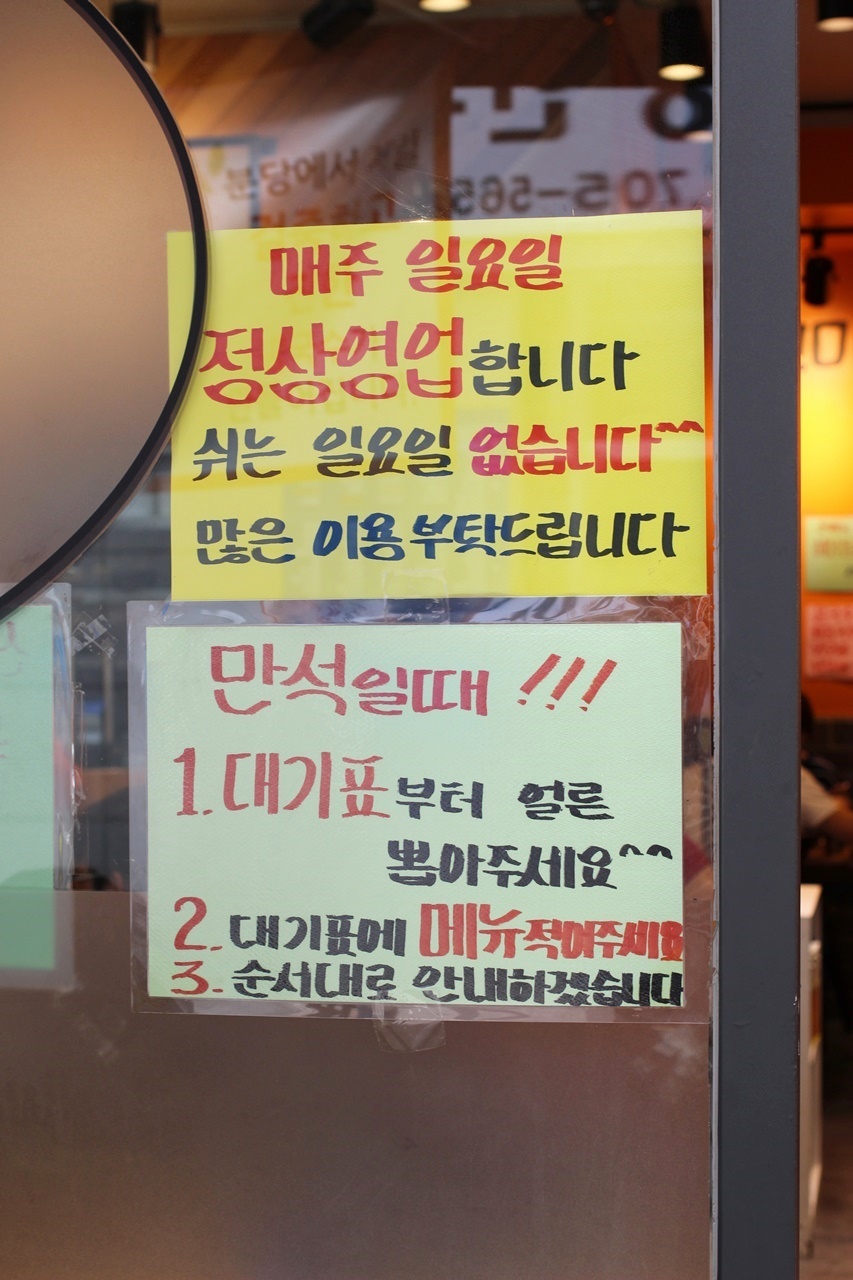 분당에서
705-565
매주 일요일
정상영업합니다
쉬는 일요일 없습니다^^
많은 이용부탁드립니다
만석일때 !!!
1. 대기표부터 얼른
뽑아주세요^^
2. 대기표에 메뉴적어주세요
3. 순서대로 안내하겠습니다